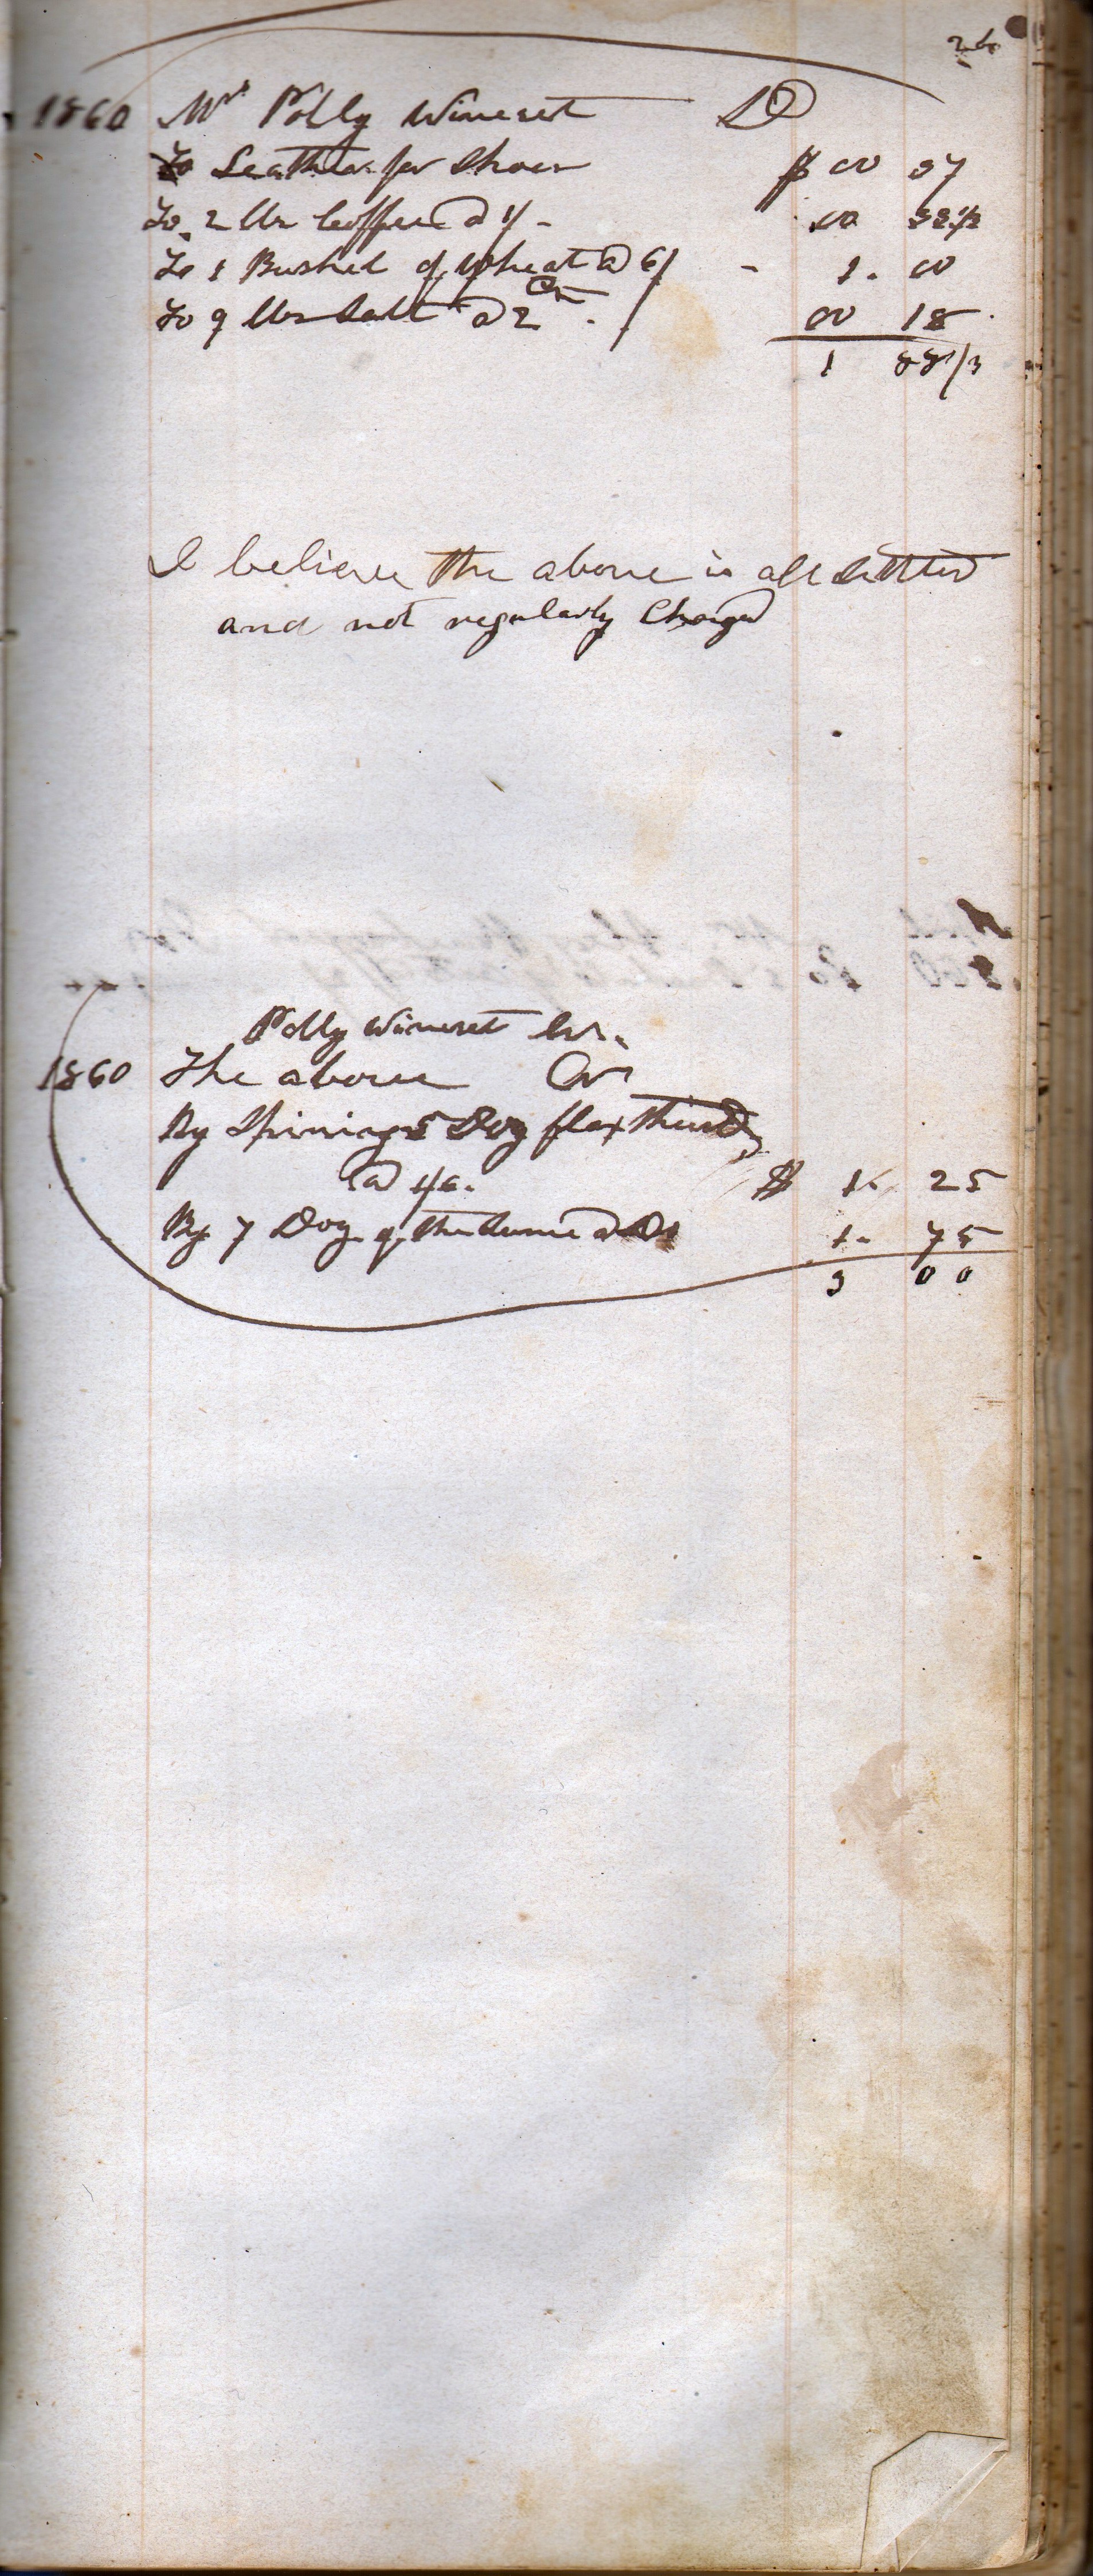 26
1860 Mrs Polly Wineset D
To Leather for Shoes $ 00 37
To 2 lbs Coffee @ 1/- 00 33 1/3
To 1 Bushel of Wheat @ 6/ - 1. 00
To 9 lbs Salt @ 2 Cts. 00 18
1 88 1/3
I believe the above is all Settled
and not regularly Charged
Polly Wineset Cr.
1860 The above Cr
By Spinning 5 Doz flax thread
@ 1/6. $ 1. 25
By 7 Doz of the Same @ Do 1. 75
3 00